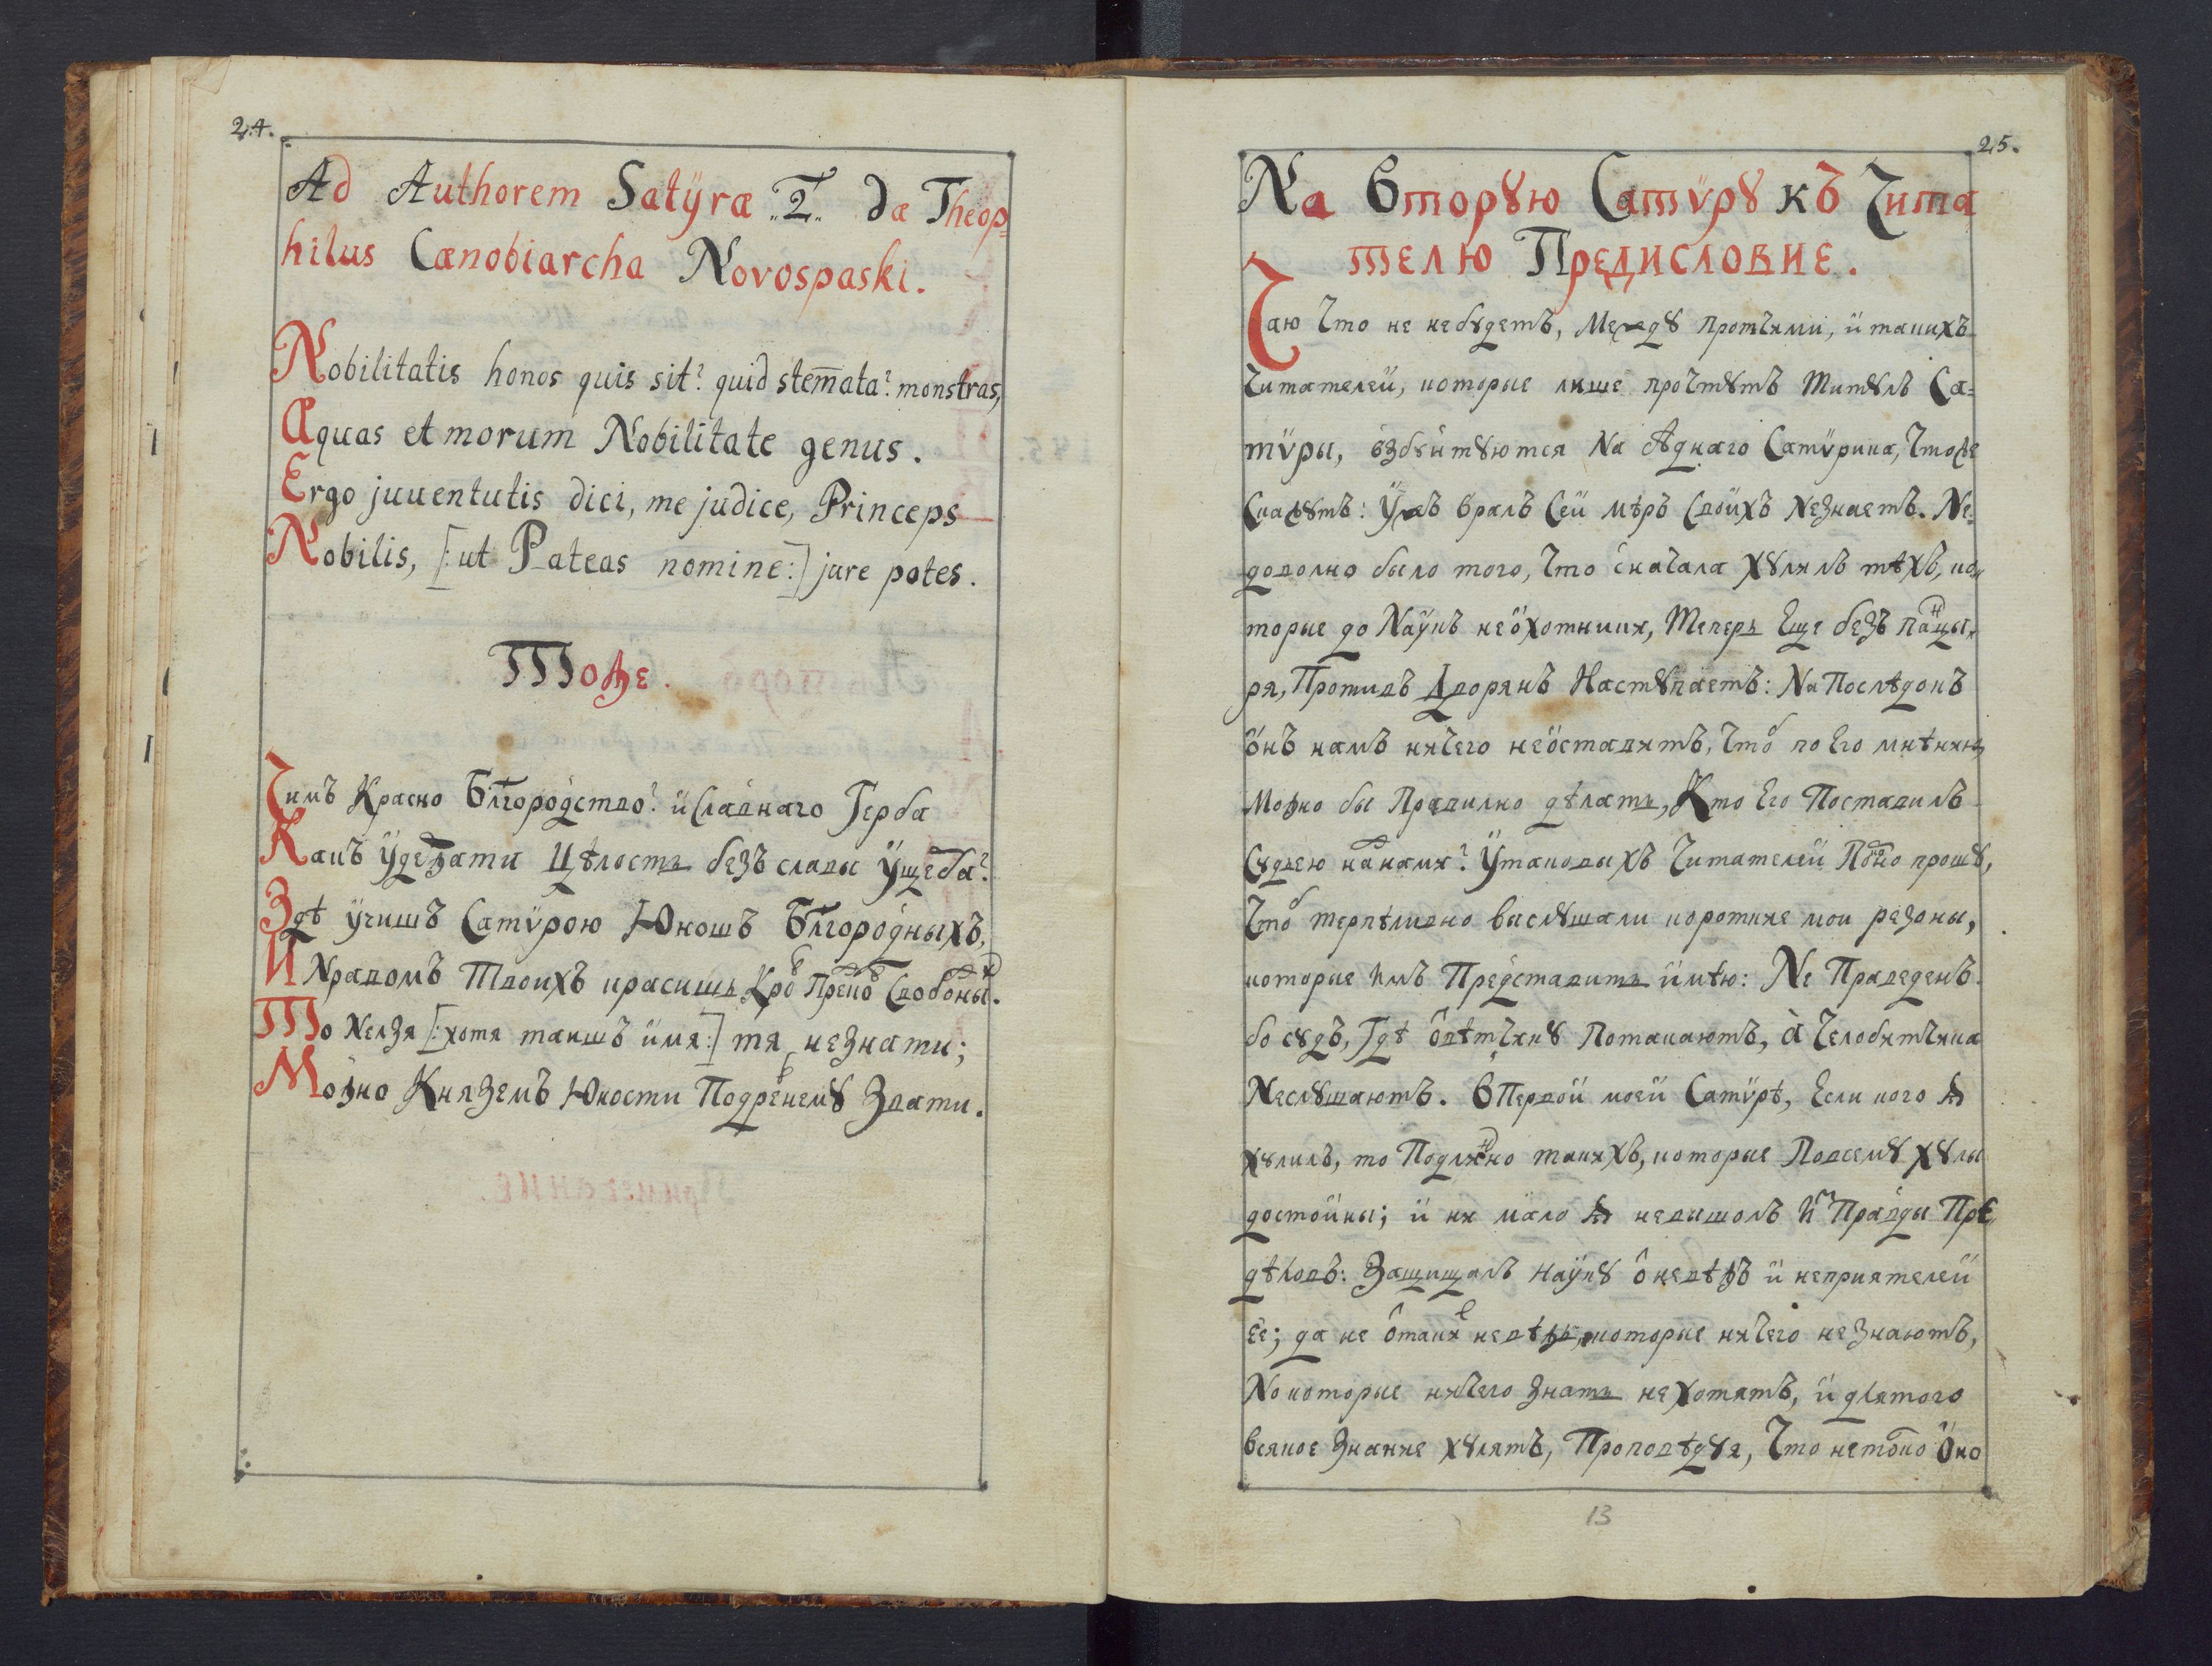 24.
Ad Authorem Satÿræ „2„ Dæ Theop=
hilus Cænobiarcha Novospaski.
Nobilitatis honos quis sit? quid stem̄ata? monstras,
Aquas et morum Nobilitate genus.
Ergo juuentutis dici, me judice, Princeps
Nobilis, [: ut Pateas nomine :] jure potes.
Тоже.
Чимъ Красно Блгородство? и Славнаго Герба
Какъ удержати цѣлость безъ славы ущерба?
Здѣ учишъ Сатѵрою Юношъ Блгородныхъ,
И Нравомъ Твоихъ красишь
То Нелзя [: хотя таишъ имя :] тя незнати;
Можно Княземъ Юности Звати.
25.
На Вторꙋю Сатѵрꙋ къ Чита
телю Предисловие.
Чаю Что не небꙋдетъ, Междꙋ протчими, и такихъ
Читателей, которые лише прочтꙋтъ Титꙋлъ Са=
тѵры, взбꙋнтꙋются На Аднаго Сатѵрика, Что же
Скажꙋтъ: Ужъ вралъ Сей мѣръ Своихъ Незнаетъ. Не
доволно было того, Что сначала Хꙋлилъ тѣхъ, ко
торые до Наукъ неохотники, Теперь Еще безъ панцы
ря, Противъ Дворянъ Настꙋпаетъ: На Послѣдокъ
онъ намъ ничего неоставитъ, Чтоб по Его мнѣнию
Можно бы Правилно дѣлать, Кто Его Поставилъ
Сꙋдьею на нами? У таковыхъ Читателей прошꙋ,
Чтоб терпѣливно выслꙋшали короткие мои резоны,
которые имъ Представить имѣю: Не Праведенъ
бо сꙋдъ, Гдѣ Ѿвѣтчикꙋ Потакаютъ, а Челобитчика
Неслꙋшаютъ. В Первой моей Сатѵрѣ, Если кого Я
хꙋлилъ, то Подлинно такихъ, которые Повсемꙋ Хꙋлы
достойны; и ни мало Я невышолъ из Правды Пре
дѣловъ: Защищалъ Наукꙋ Ѿ невѣжъ и неприятелей
Ее; да не Ѿ таких невѣжь, которые ничего не знаютъ,
Но которые ничего Знать не Хотятъ, и для того
всякое Знание хꙋлятъ, Проповѣдꙋя, Что нетокмо Оно
13